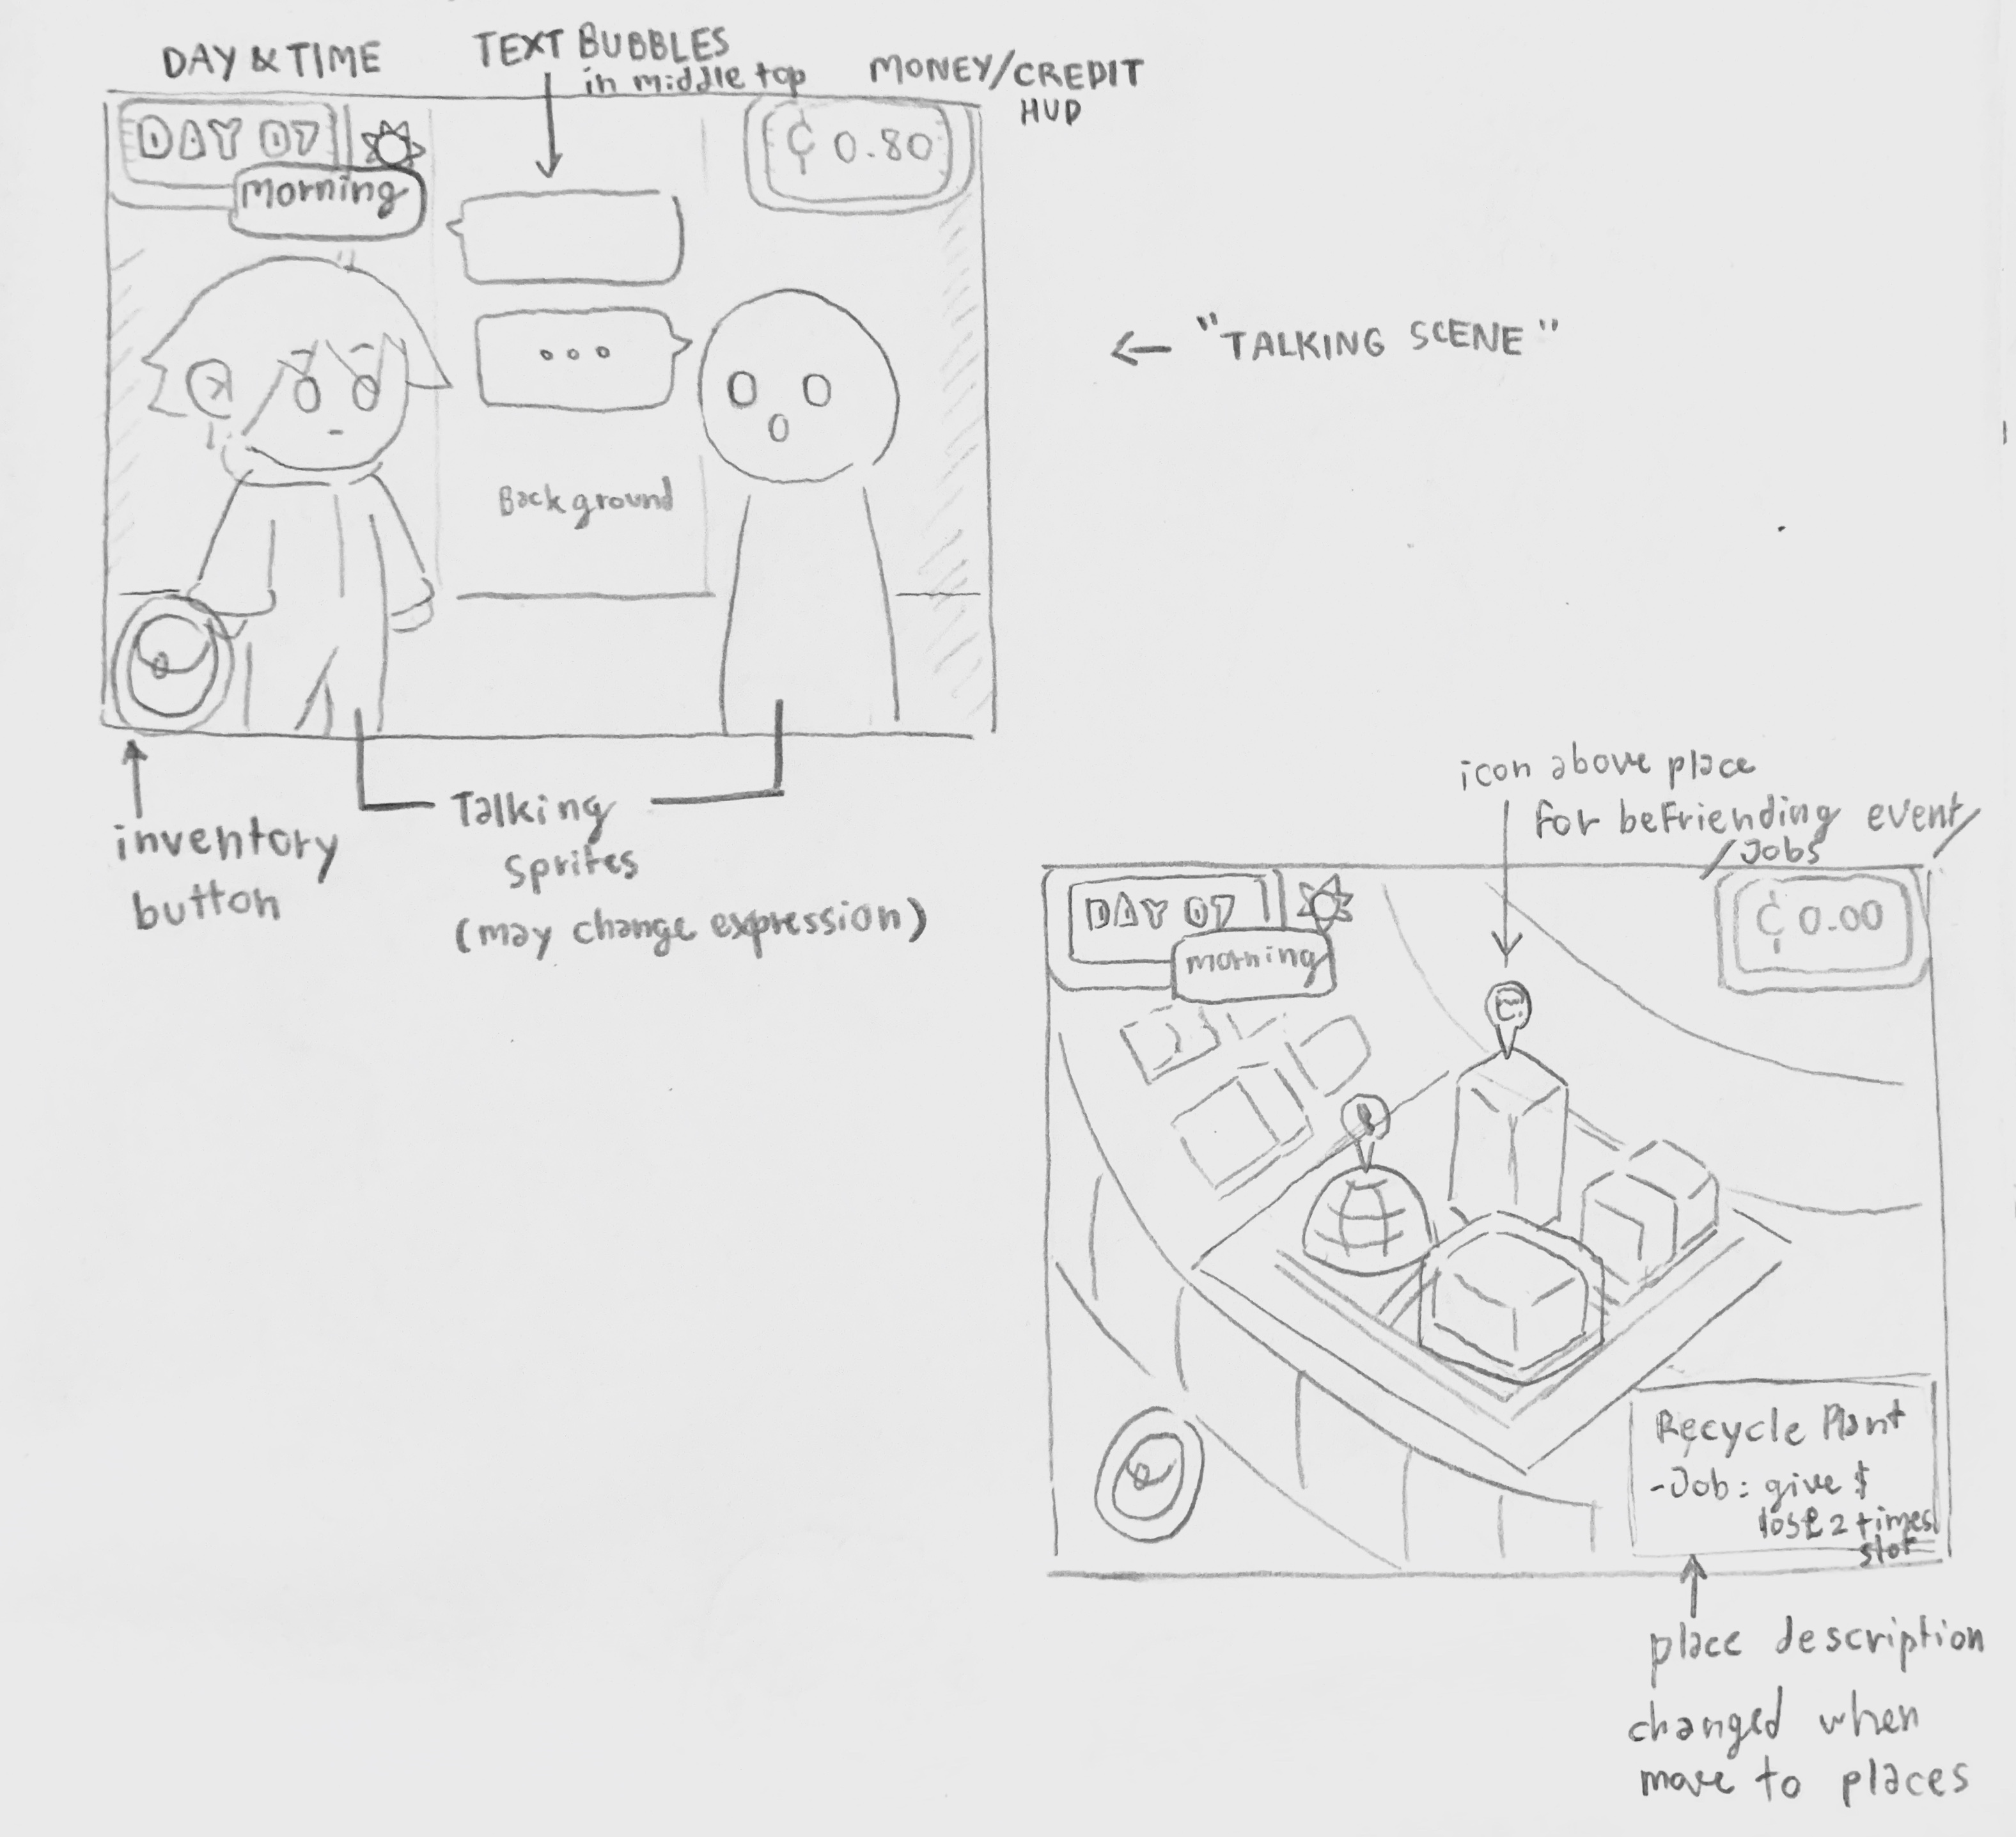 DAY & TIME
TEXT BUBBLES
in middle top
MONEY/CREDIT
HUD
DAY 07
morning
₵ 0.80
...
Background
← "TALKING SCENE"
inventory
button
Talking
sprites
(may change expression)
icon above place
for befriending event/
/Jobs
DAY 07
morning
₵ 0.00
Recycle Plant
-Job: give $
lose 2 times
slot
place description
changed when
move to places